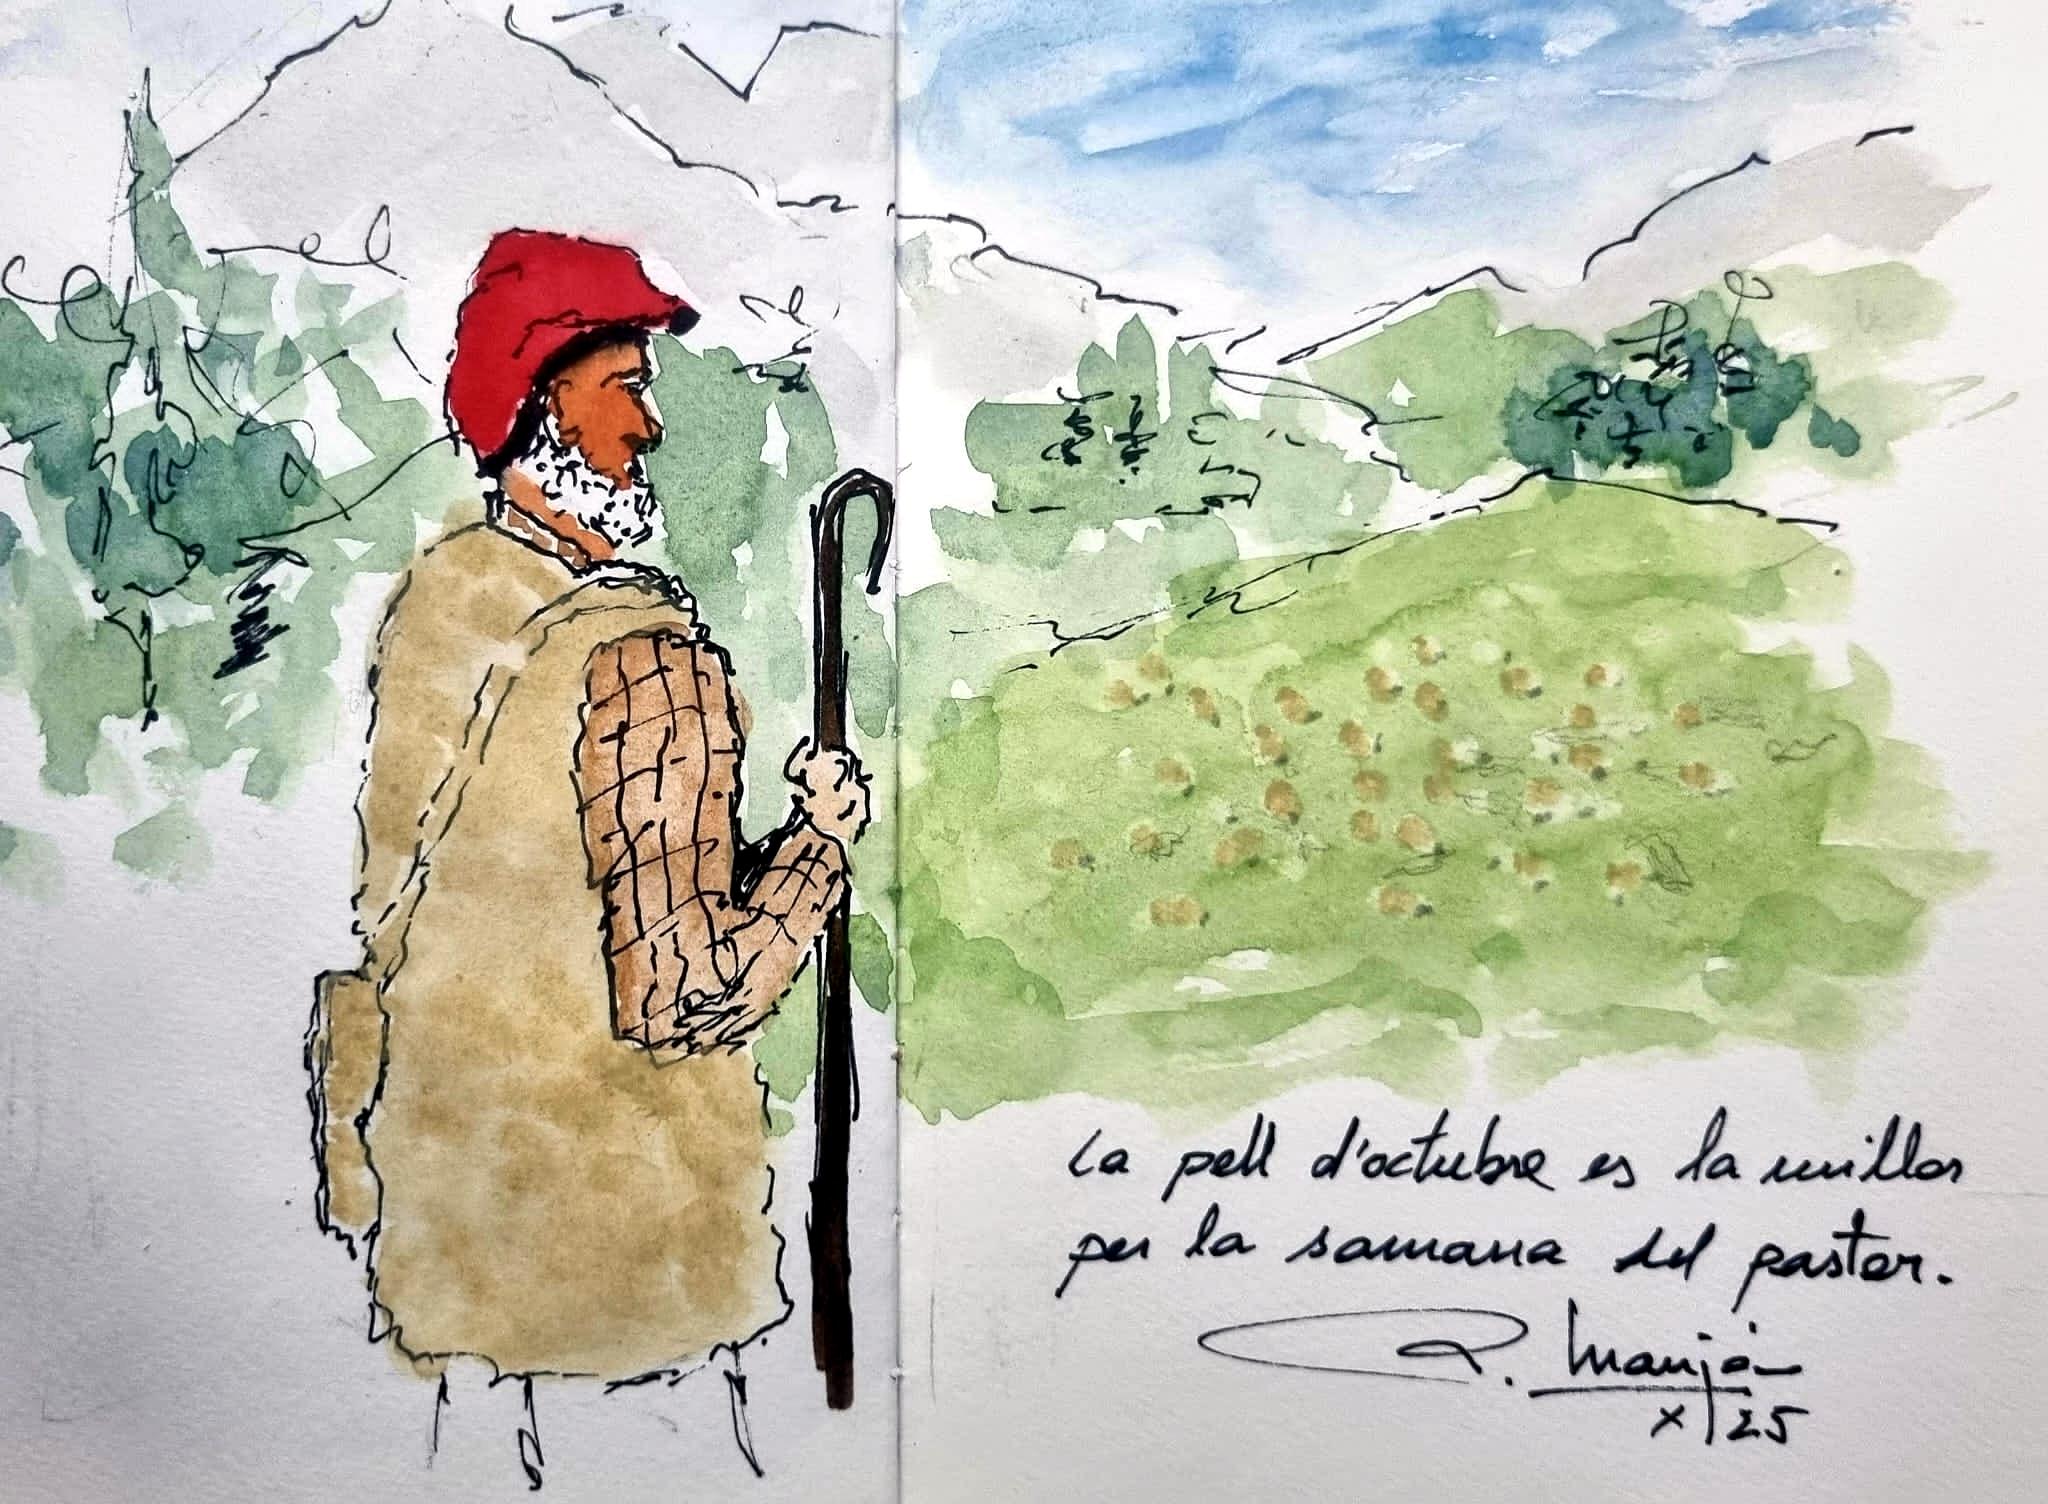 La pell d'octubre es la millor
per la samarra del pastor.
R. Manjón
X 25